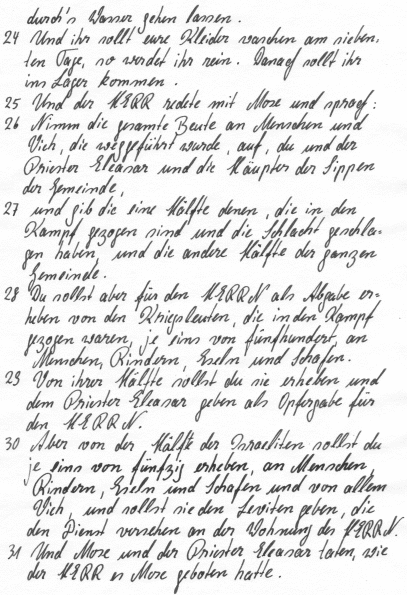 durch's Wasser gehen lassen.
24 Und ihr sollt eure Kleider waschen am sieben-
ten Tage, so werdet ihr rein. Danach sollt ihr
ins Lager kommen.
25 Und der HERR redete mit Mose und sprach:
26 Nimm die gesamte Beute an Menschen und
Vieh, die weggeführt wurde, auf, du und der
Priester Eleasar und die Häupter der Sippen
der Gemeinde,
27 und gib die eine Hälfte denen, die in den
Kampf gezogen sind und die Schlacht geschla-
gen haben, und die andere Hälfte der ganzen
Gemeinde.
28 Du sollst aber für den HERRN als Abgabe er-
heben von den Kriegsleuten, die in den Kampf
gezogen waren, je eins von fünfhundert, an
Menschen, Rindern, Eseln und Schafen.
29 Von ihrer Hälfte sollst du sie erheben und
dem Priester Eleasar geben als Opfergabe für
den HERRN.
30 Aber von der Hälfte der Israeliten sollst du
je eins von fünfzig erheben, an Menschen,
Rindern, Eseln und Schafen und von allem
Vieh, und sollst sie den Leviten geben, die
den Dienst versehen an der Wohnung des HERRN.
31 Und Mose und der Priester Eleasar taten, wie
der HERR es Mose geboten hatte.